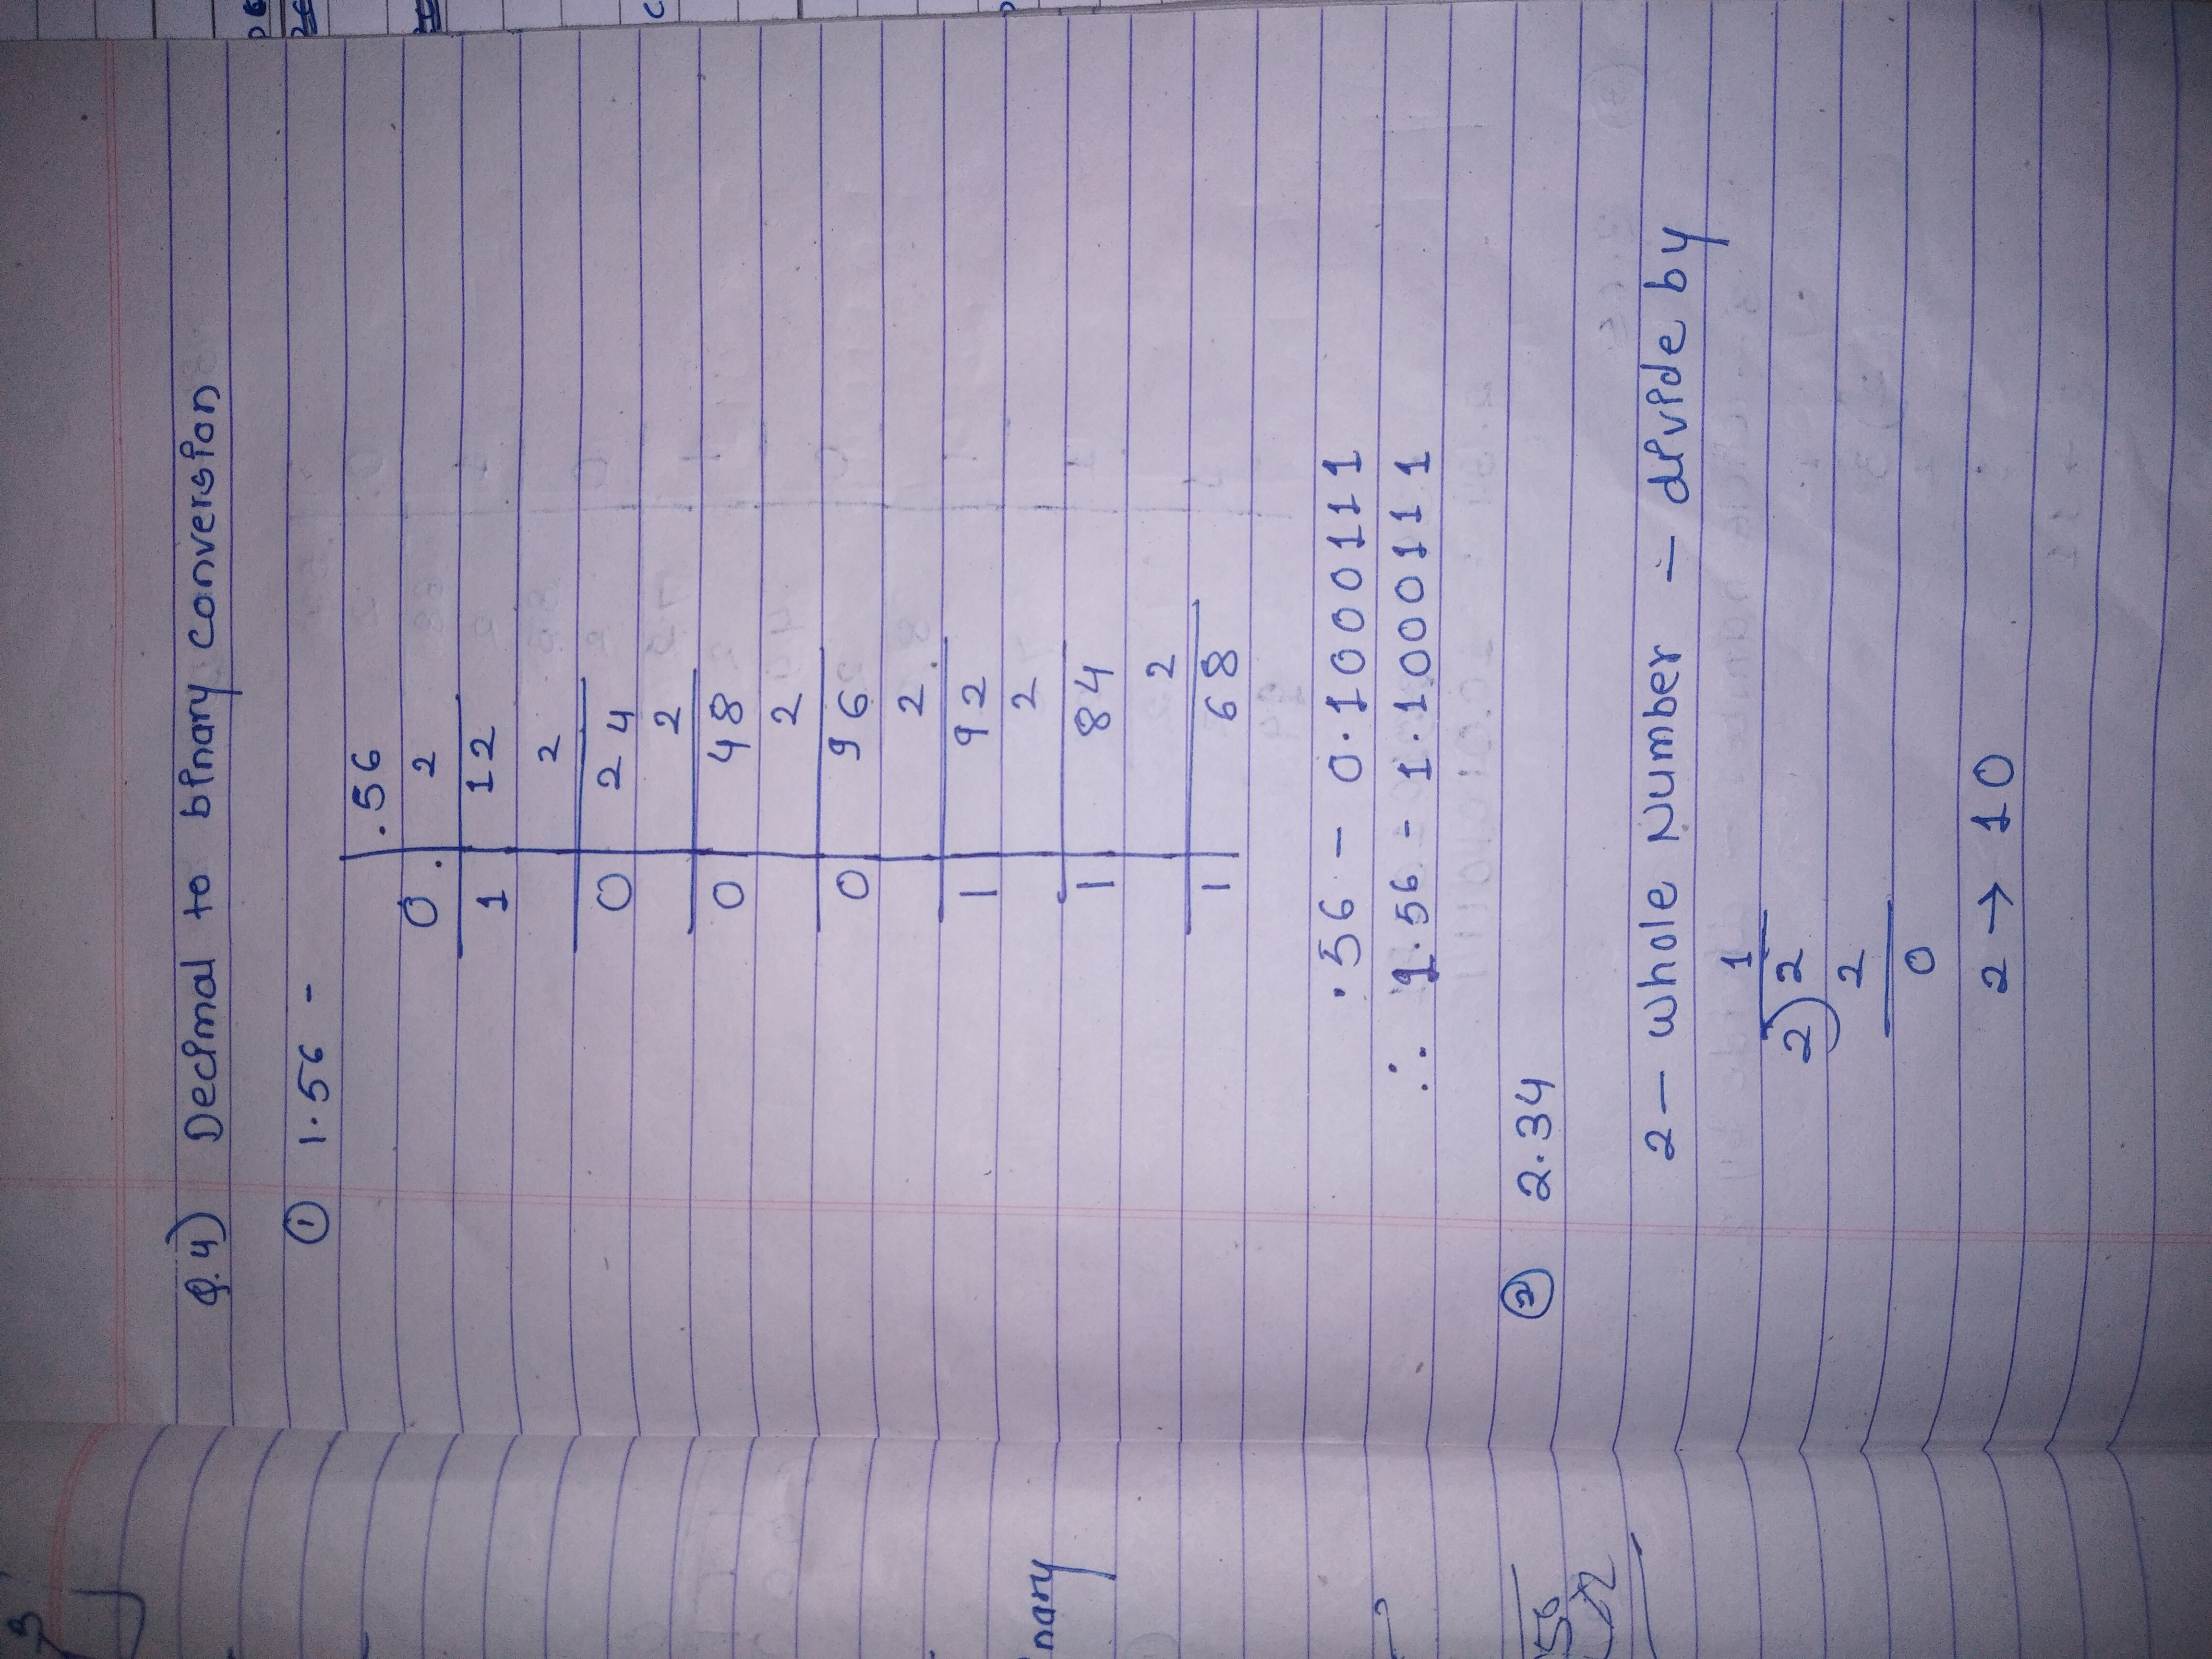 Q.4) Decimal to binary conversion
① 1.56 -
.56
0. 2
1 12
2
0 24
2
0 48
2
0 96
2
1 92
2
1 84
2
1 68
.56 - 0.1000111
∴ 1.56 - 1.1000111
② 2.34
2 - whole Number - divide by
1
2) 2
2
0
2 → 10
nary